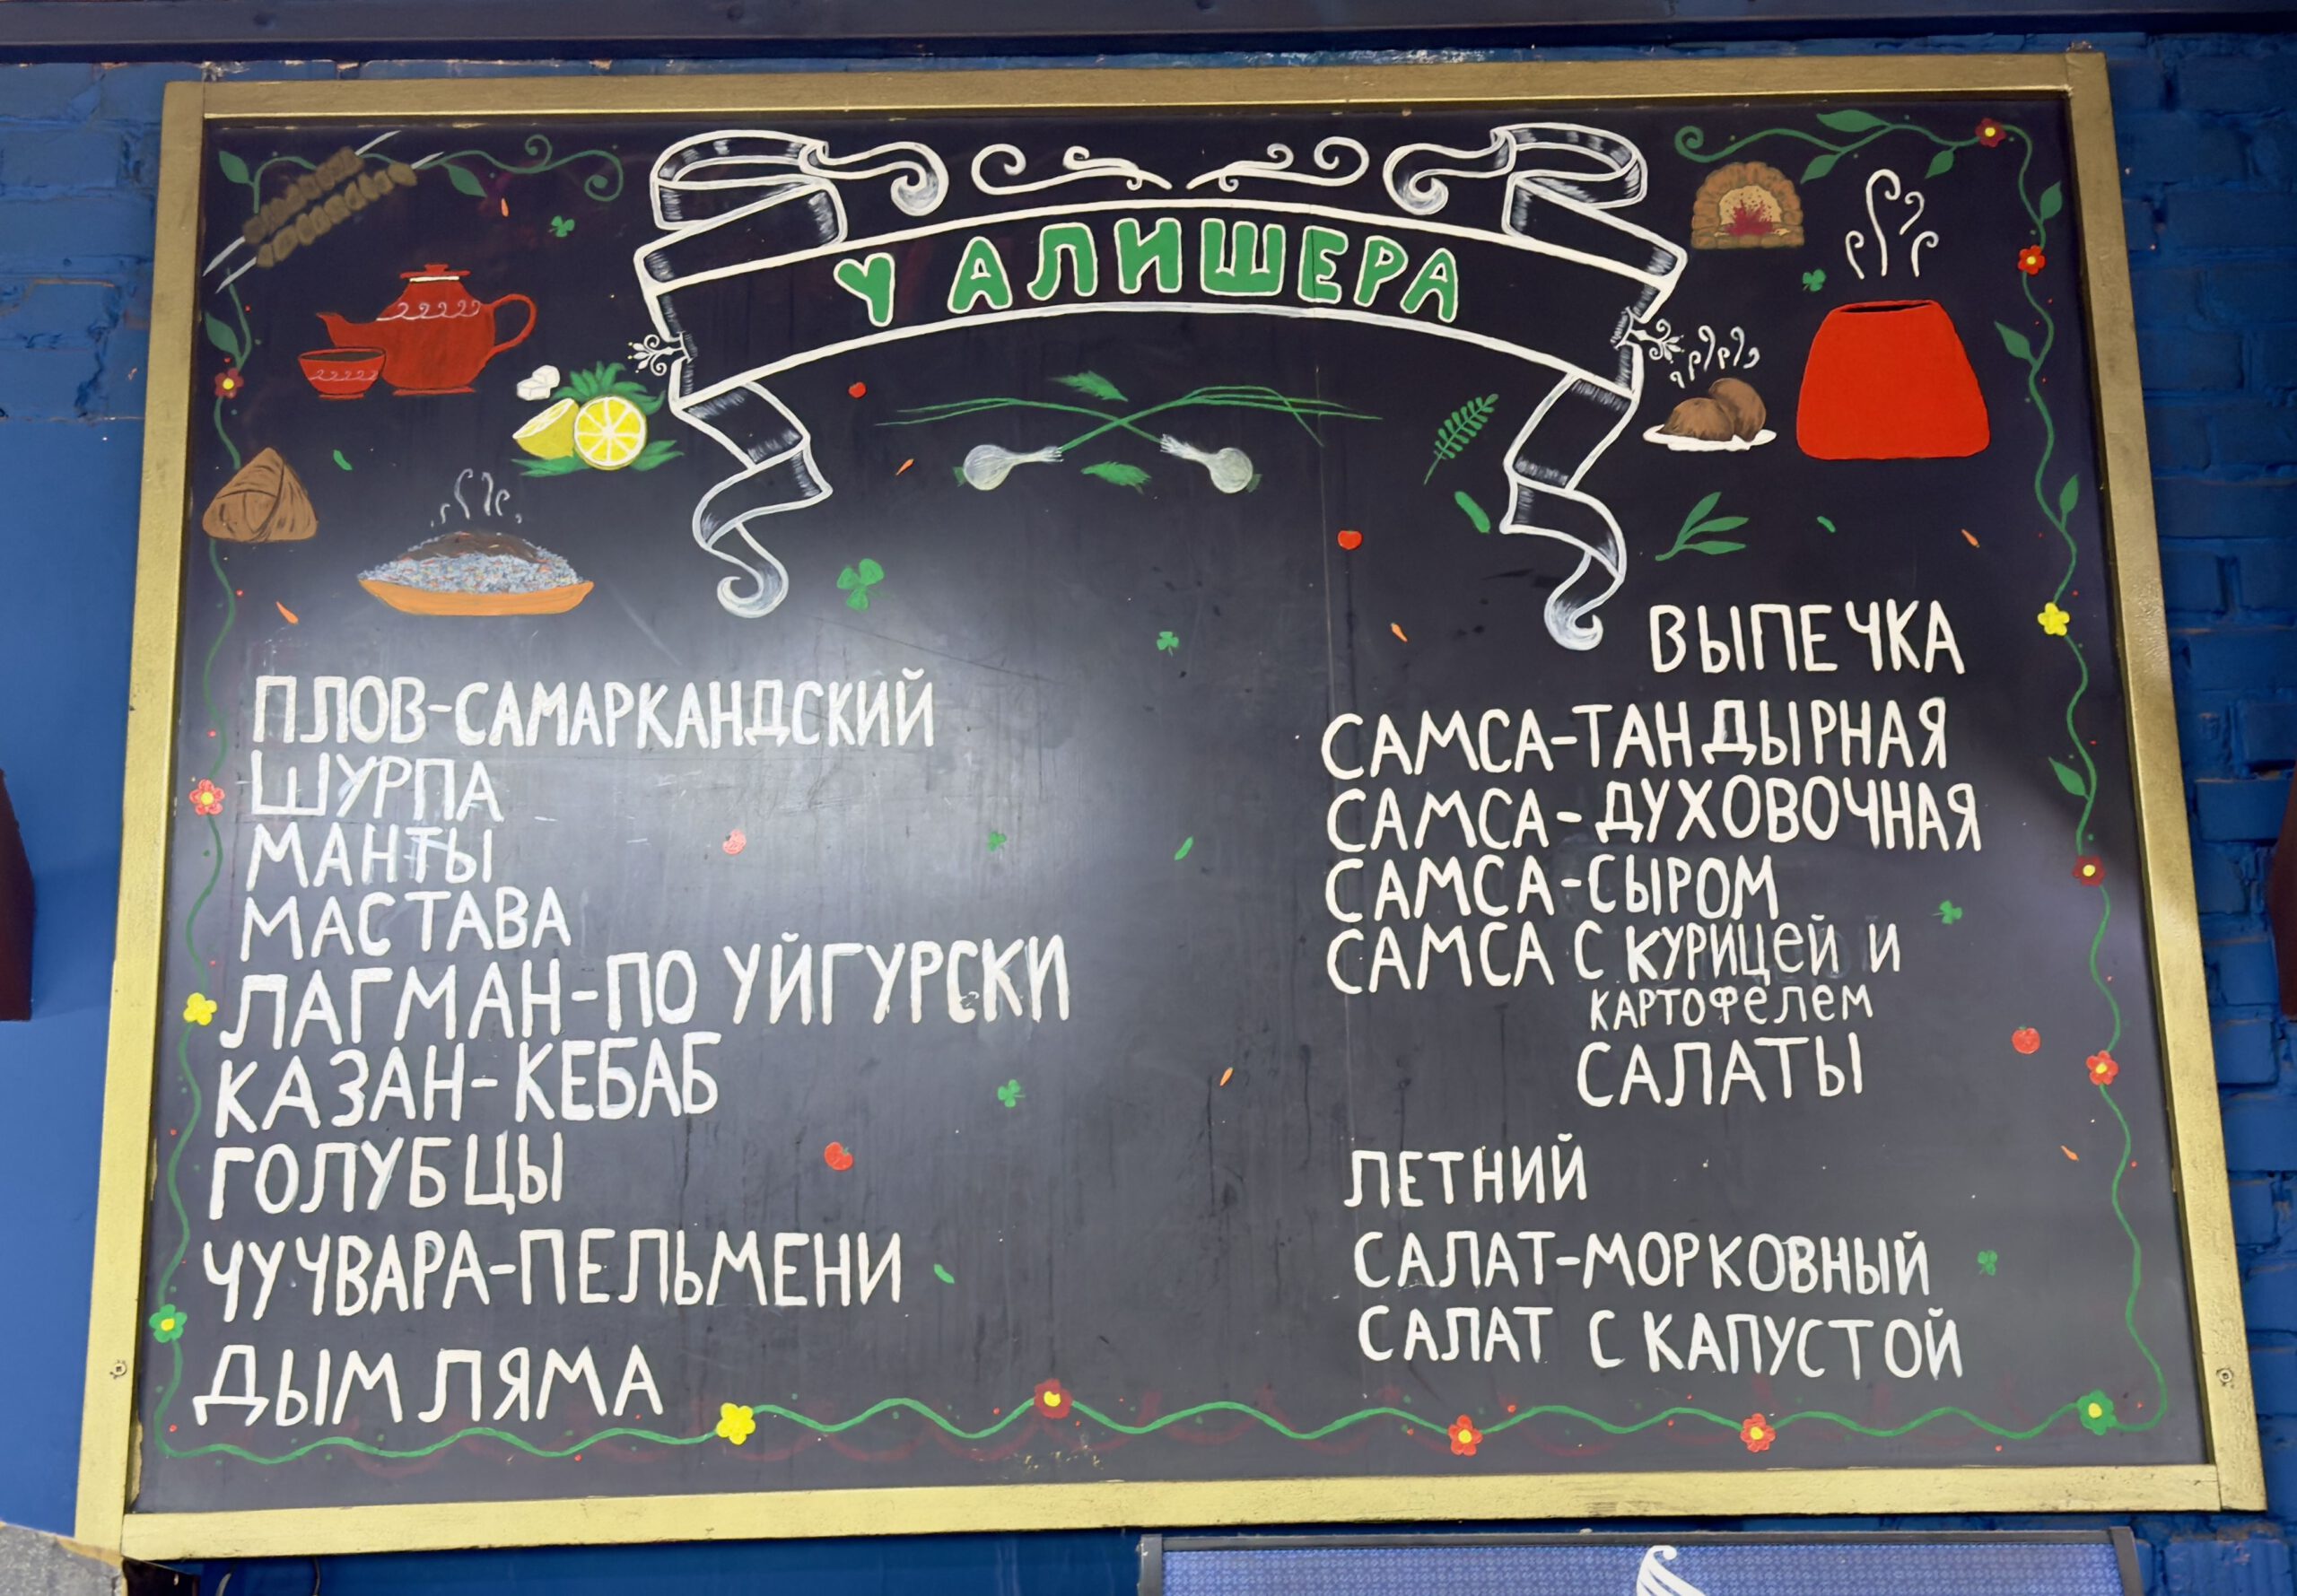 У АЛИШЕРА
ПЛОВ-САМАРКАНДСКИЙ
ШУРПА
МАНТЫ
МАСТАВА
ЛАГМАН-ПО УЙГУРСКИ
КАЗАН-КЕБАБ
ГОЛУБЦЫ
ЧУЧВАРА-ПЕЛЬМЕНИ
ДЫМЛЯМА
ВЫПЕЧКА
САМСА-ТАНДЫРНАЯ
САМСА-ДУХОВОЧНАЯ
САМСА-СЫРОМ
САМСА С КУРИЦЕЙ И
КАРТОФЕЛЕМ
САЛАТЫ
ЛЕТНИЙ
САЛАТ-МОРКОВНЫЙ
САЛАТ С КАПУСТОЙ